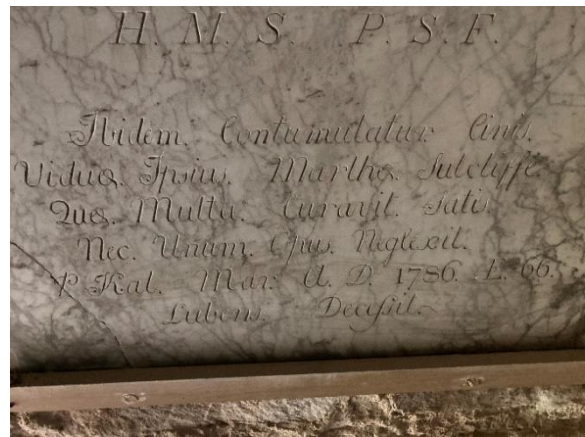 H. M. S. P. S. F.
Ibidem. Contumulatur. Cinis.
Viduæ. Ipsius. Marthæ. Sutcliffe.
Quæ. Multa. Curavit. Satis.
Nec. Unum. Opus. Neglexit.
P. Kal. Mar. A. D. 1786. Æ. 66.
Lubens. Decessit.